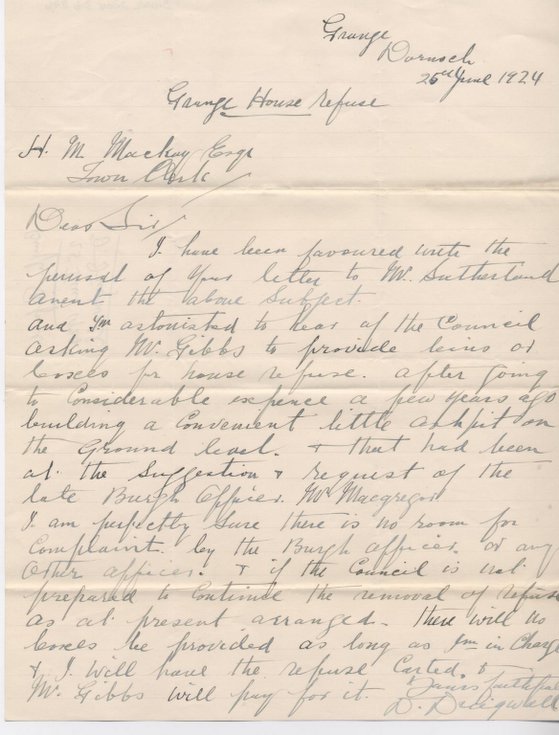 Grange
Dornoch
25th June 1924
Grange House refuse
H. M. Mackay Esqr
Town Clerk
Dear Sir
I have been favoured with the
perusal of your letter to Mr. Sutherland
anent the above Subject.
and I'm astonished to hear of the Council
asking Mr. Gibbs to provide bins or
boxes for house refuse. after going
to Considerable expence a few years ago
building a Convenient little ashpit on
the Ground level. & that had been
at the Suggestion & request of the
late Burgh Officer. Mr Macgregor
I am perfectly Sure there is no room for
Complaint. by the Burgh officer. or any
Other officer. & if the Council is not
prepared to Continue the removal of refuse
as at present arranged. there will no
boxes be provided as long as I'm in Charge
& I. Will have the refuse Carted. &
Mr. Gibbs will pay for it.
Yours faithful
D.